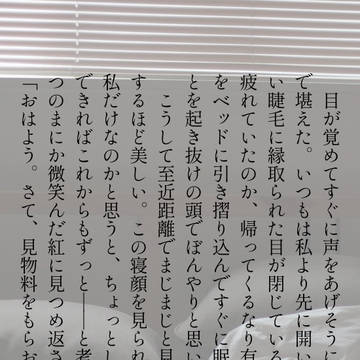 目が覚めてすぐに声をあげそうに
で堪えた。いつもは私より先に開い
い睫毛に縁取られた目が閉じている
疲れていたのか、帰ってくるなり有
をベッドに引き摺り込んですぐに眠
とを起き抜けの頭でぼんやりと思い
こうして至近距離でまじまじと見
するほど美しい。この寝顔を見られ
私だけなのかと思うと、ちょっとし
できればこれからもずっと――と考
つのまにか微笑んだ紅に見つめ返さ
「おはよう。さて、見物料をもらお